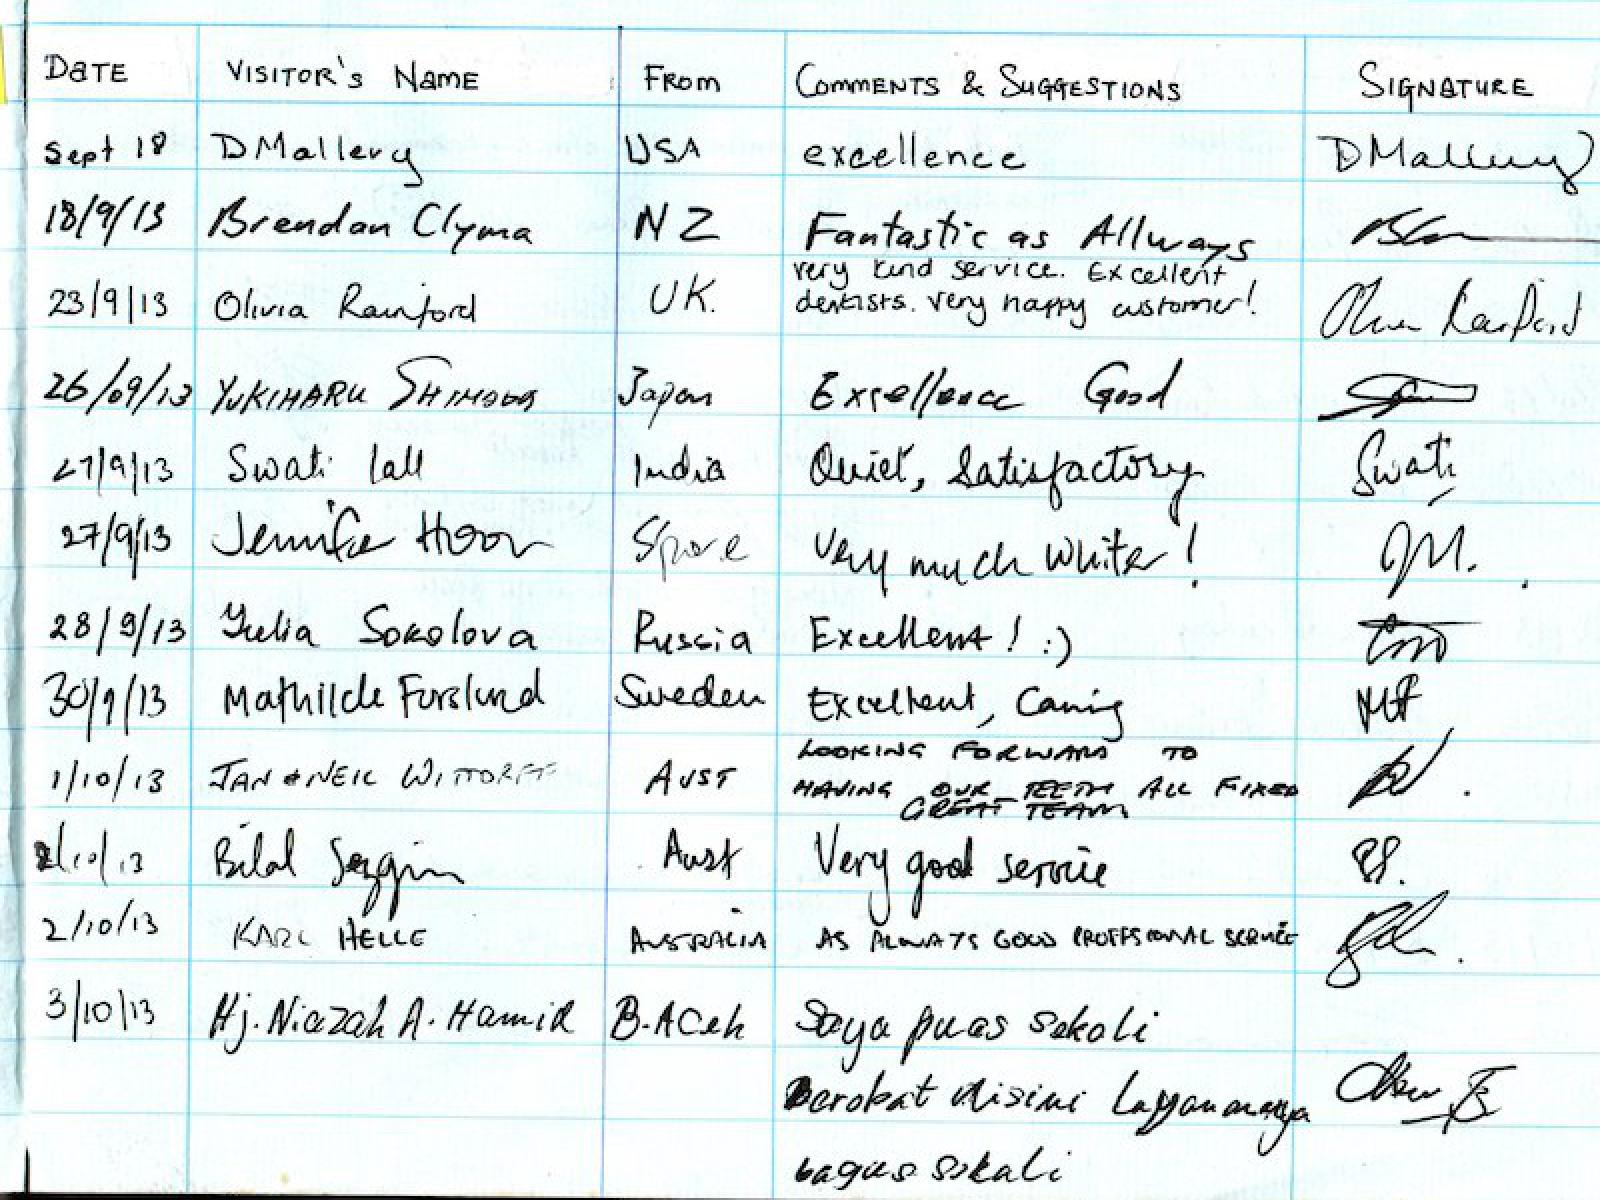 DATE VISITOR'S NAME FROM COMMENTS & SUGGESTIONS SIGNATURE
Sept 18 D Mallery USA excellence D Mallery
18/9/13 Brendan Clyma NZ Fantastic as Allways
very kind service. Excellent
23/9/13 Olivia Rainford UK. dentists. very happy customer! Olivia Rainford
26/09/13 YUKIHARU SHIMODA Japan Excellence Good
27/9/13 Swati Lall India Quiet, Satisfactory Swati
27/9/13 Jennifer Hoon S'pore Very much whiter! JM.
28/9/13 Yulia Sokolova Russia Excellent! :)
30/9/13 Mathilde Forslund Sweden Excellent, Caring MF
LOOKING FORWARD TO
1/10/13 JAN & NEIL WITTORFF AUST HAVING OUR TEETH ALL FIXED
GREAT TEAM
2/10/13 Bilal Sezgin Aust Very good service BS.
2/10/13 KARL HELLE AUSTRALIA AS ALWAYS GOOD PROFFSIONAL SERVICE
3/10/13 Hj. Niazah A. Hamid B. ACeh Saya puas sekali
berobat disini Layanannya
bagus sekali